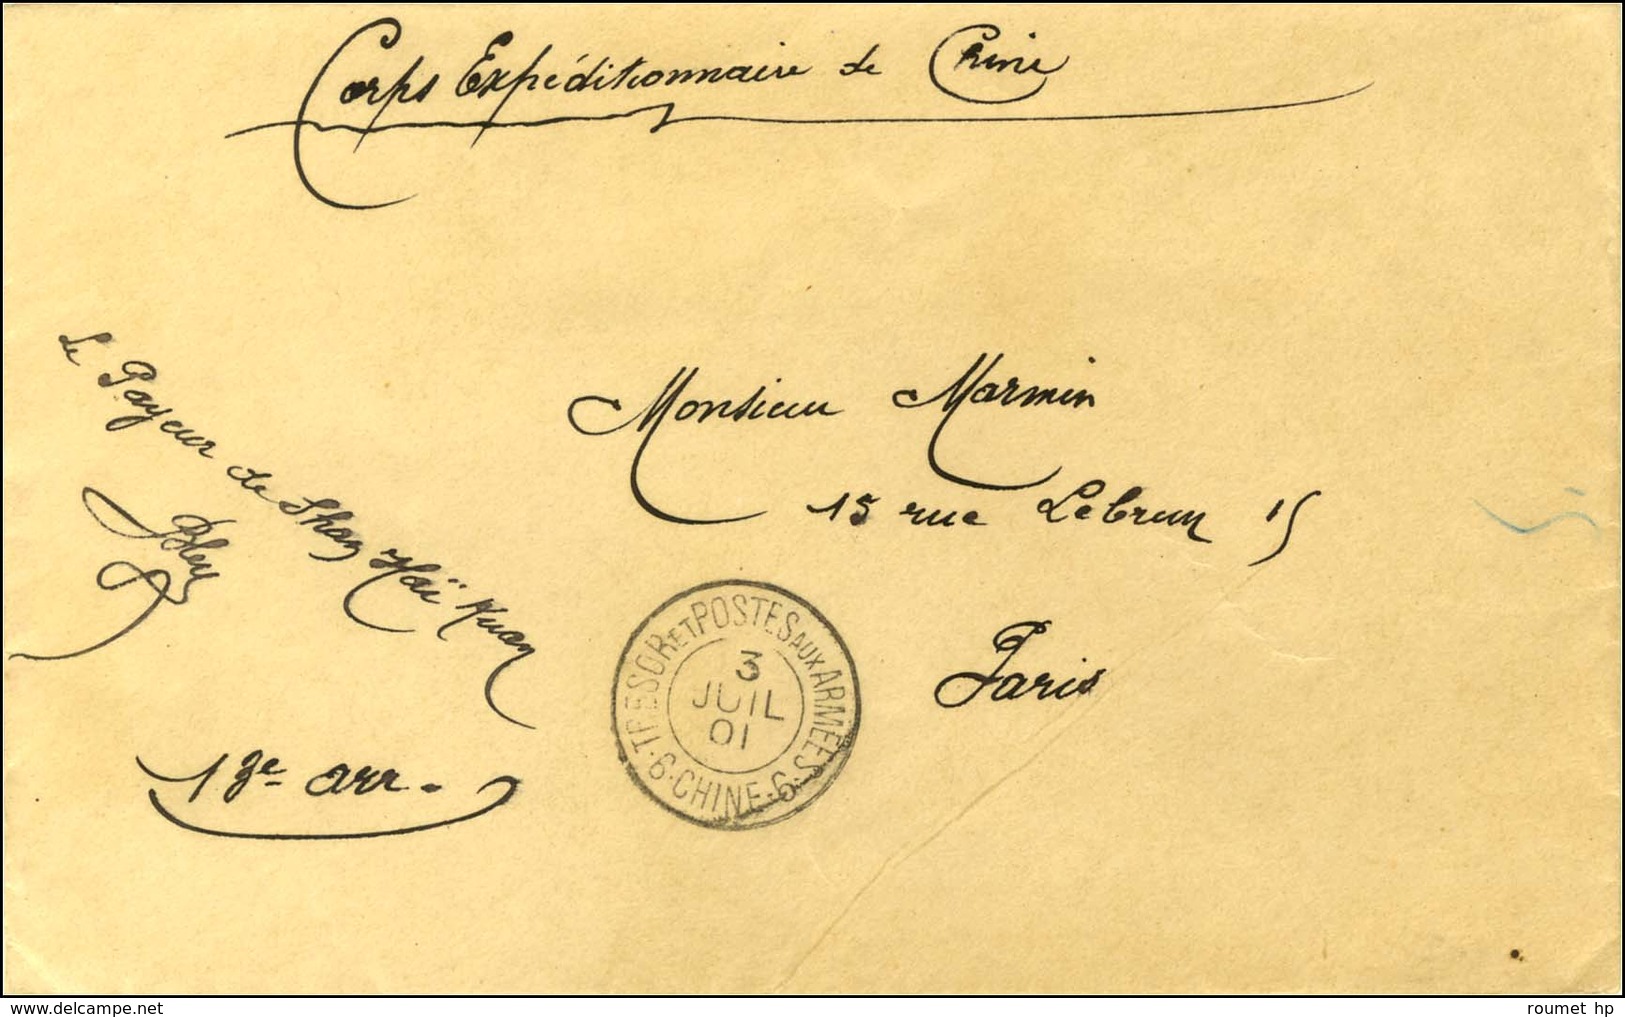 Corps Expéditionnaire de Chine
Le Payeur de Shan Haï Kuan
Monsieur Marmin
15 rue Lebrun 15
Paris
13e arr.
TRESOR ET POSTES AUX ARMÉES
3
JUIL
01
6 · CHINE · 6
delcampe.net
roumet hp